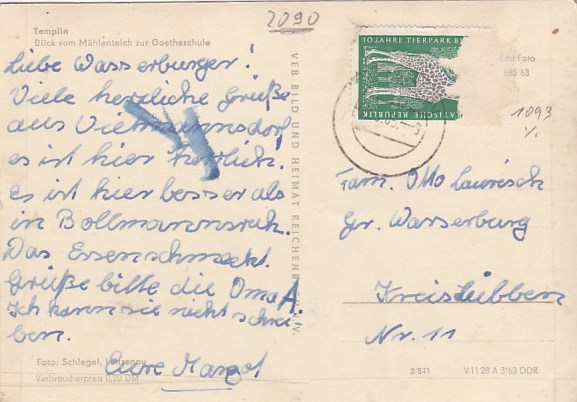 2090
Templin
Blick vom Mühlenteich zur Goetheschule
Liebe Wasserburger!
Viele herzliche Grüße
aus Vietmannsdorf
es ist hier herrlich.
es ist hier besser als
in Bollmannsruh.
Das Essen schmekt.
Grüße bitte die Oma A.
Ich kann sie nicht schrei-
ben.
Eure Margot
Foto: Schlegel,
Verbraucherpreis 0,20 DM
VEB BILD UND HEIMAT REICHENB
10 JAHRE TIERPARK B
ATISCHE REPUBLIK
Foto
685/63
1093
Fam. Otto Laurisch
Gr. Wasserburg
Kreis Lübben
Nr. 11
3/541
V 11 28 A 3/63 DDR